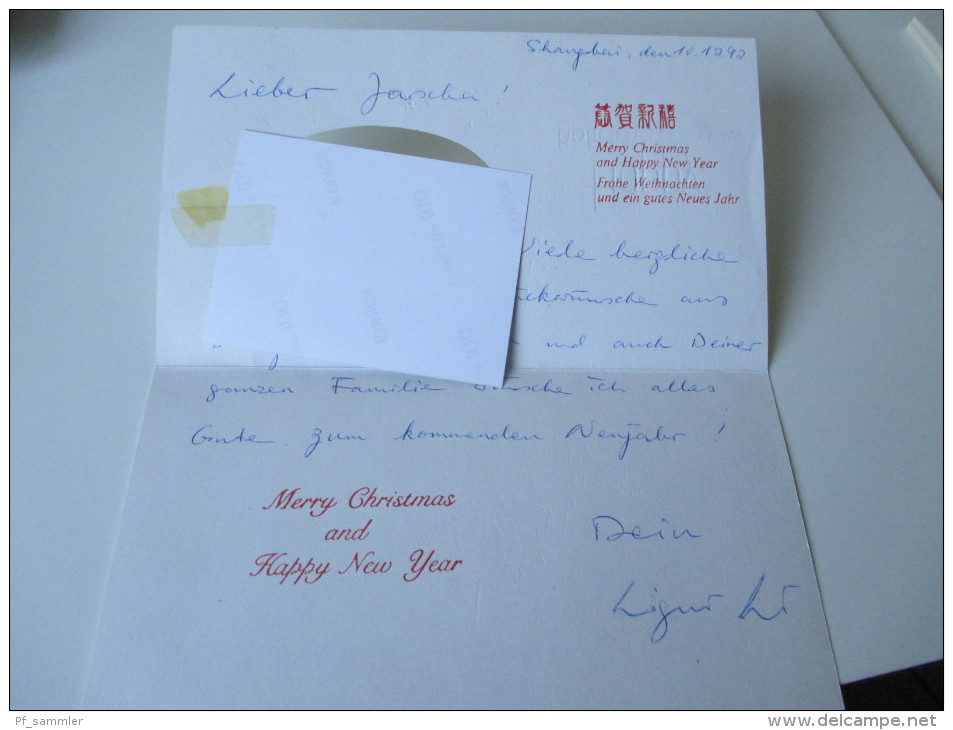 Shanghai, den 10.12.92
Lieber Jascha!
恭賀新禧
Merry Christmas
and Happy New Year
Frohe Weihnachten
und ein gutes Neues Jahr
Viele herzliche
aus
und auch Deiner
ganzen Familie wünsche ich alles
Gute zum kommenden Neujahr!
Merry Christmas
and
Happy New Year
Dein
Pf_sammler
www.delcampe.net